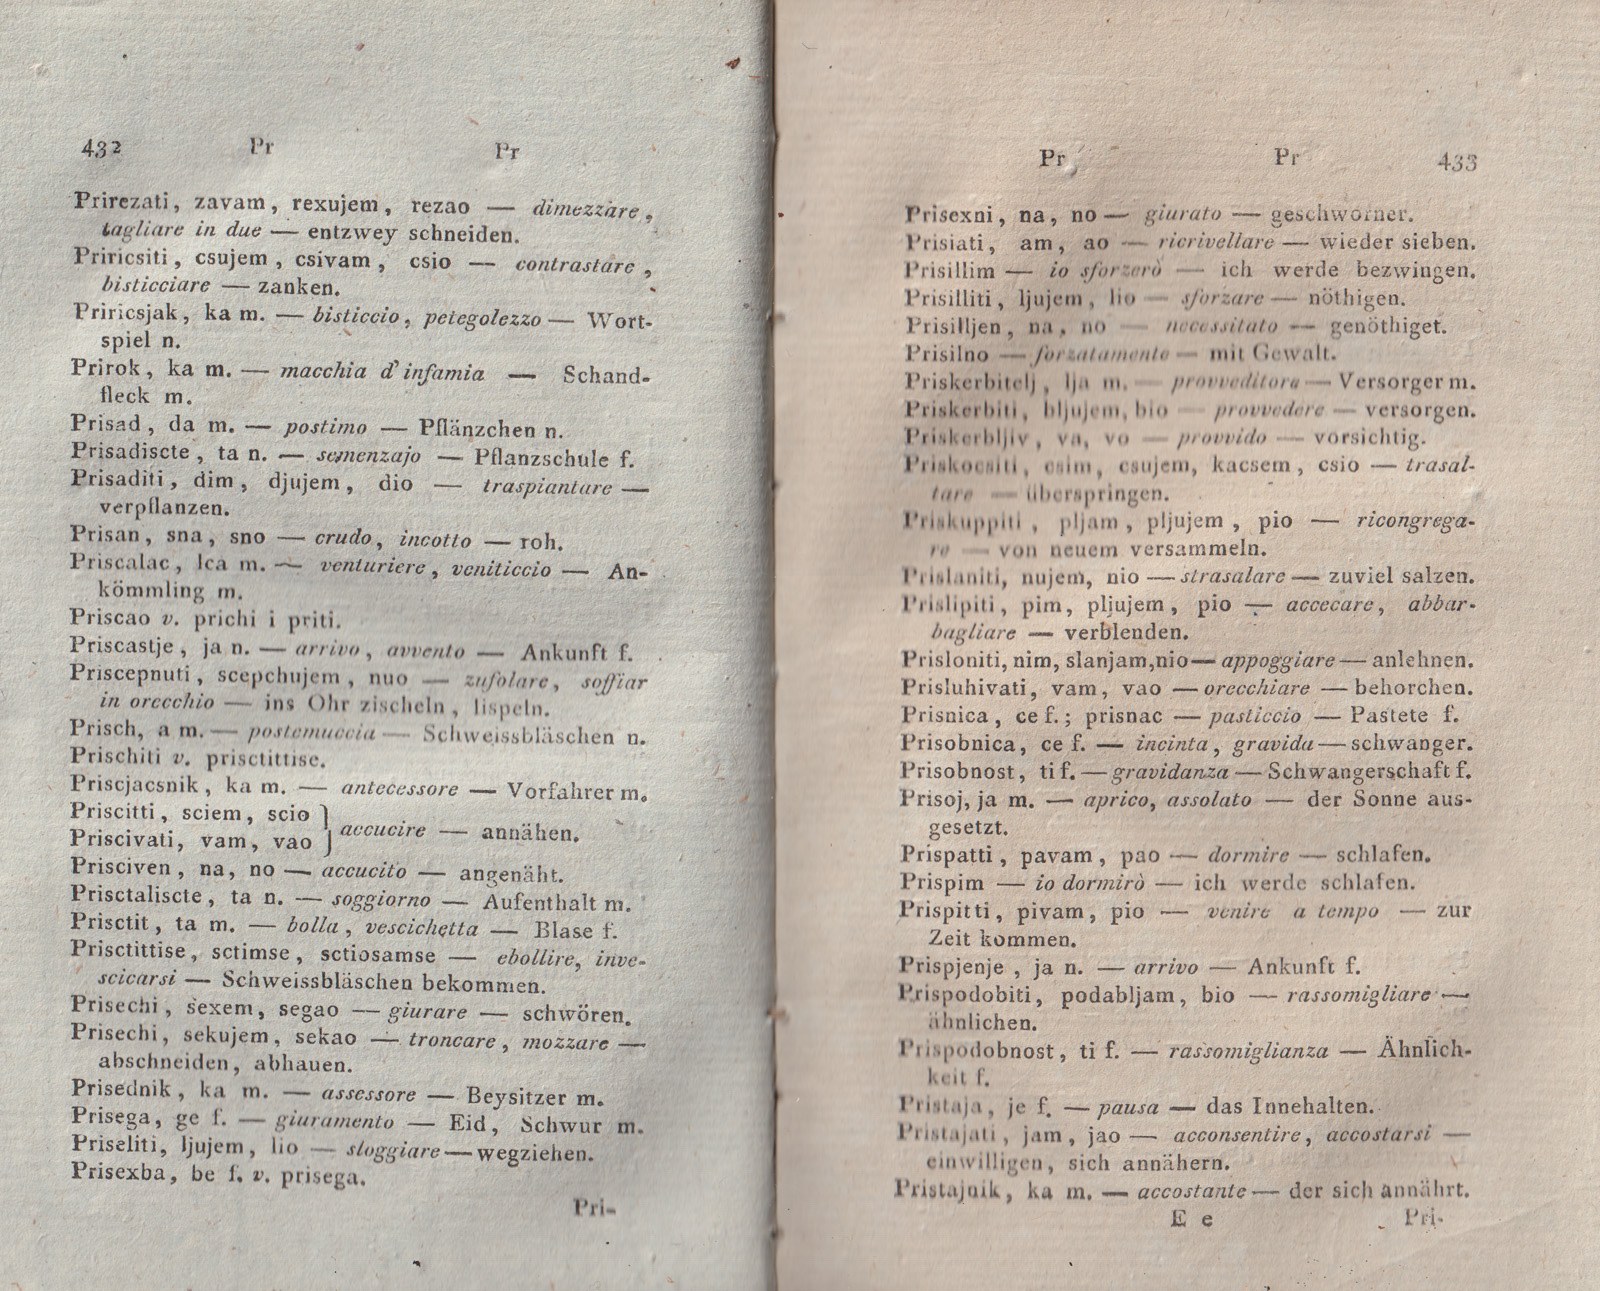 432 Pr Pr
Prirezati, zavam, rexujem, rezao — dimezzare,
tagliare in due — entzwey schneiden.
Priricsiti, csujem, csivam, csio — contrastare,
bisticciare — zanken.
Priricsjak, ka m. — bisticcio, petegolezzo — Wort-
spiel n.
Prirok, ka m. — macchia d'infamia — Schand-
fleck m.
Prisad, da m. — postimo — Pflänzchen n.
Prisadiscte, ta n. — semenzajo — Pflanzschule f.
Prisaditi, dim, djujem, dio — traspiantare —
verpflanzen.
Prisan, sna, sno — crudo, incotto — roh.
Priscalac, lca m. — venturiere, veniticcio — An-
kömmling m.
Priscao v. prichi i priti.
Priscastje, ja n. — arrivo, avvento — Ankunft f.
Priscepnuti, scepchujem, nuo — zufolare, soffiar
in orecchio — ins Ohr zischeln, lispeln.
Prisch, a m. — postemuccia — Schweissbläschen n.
Prischiti v. prisctittise.
Priscjacsnik, ka m. — antecessore — Vorfahrer m.
Priscitti, sciem, scio }
Priscivati, vam, vao } accucire — annähen.
Prisciven, na, no — accucito — angenäht.
Prisctaliscte, ta n. — soggiorno — Aufenthalt m.
Prisctit, ta m. — bolla, vescichetta — Blase f.
Prisctittise, sctimse, sctiosamse — ebollire, inve-
scicarsi — Schweissbläschen bekommen.
Prisechi, sexem, segao — giurare — schwören.
Prisechi, sekujem, sekao — troncare, mozzare —
abschneiden, abhauen.
Prisednik, ka m. — assessore — Beysitzer m.
Prisega, ge f. — giuramento — Eid, Schwur m.
Priseliti, ljujem, lio — sloggiare — wegziehen.
Prisexba, be f. v. prisega.
Pri-
Pr Pr 433
Prisexni, na, no — giurato — geschworner.
Prisiati, am, ao — ricrivellare — wieder sieben.
Prisillim — io sforzerò — ich werde bezwingen.
Prisilliti, ljujem, lio — sforzare — nöthigen.
Prisilljen, na, no — necessitato — genöthiget.
Prisilno — forzatamente — mit Gewalt.
Priskerbitelj, lja m. — provveditore — Versorger m.
Priskerbiti, bljujem, bio — provvedere — versorgen.
Priskerbljiv, va, vo — provvido — vorsichtig.
Priskocsiti, csim, csujem, kacsem, csio — trasal-
tare — überspringen.
Priskuppiti, pljam, pljujem, pio — ricongrega-
re — von neuem versammeln.
Prislaniti, nujem, nio — strasalare — zuviel salzen.
Prislipiti, pim, pljujem, pio — accecare, abbar-
bagliare — verblenden.
Prisloniti, nim, slanjam, nio — appoggiare — anlehnen.
Prisluhivati, vam, vao — orecchiare — behorchen.
Prisnica, ce f.; prisnac — pasticcio — Pastete f.
Prisobnica, ce f. — incinta, gravida — schwanger.
Prisobnost, ti f. — gravidanza — Schwangerschaft f.
Prisoj, ja m. — aprico, assolato — der Sonne aus-
gesetzt.
Prispatti, pavam, pao — dormire — schlafen.
Prispim — io dormirò — ich werde schlafen.
Prispitti, pivam, pio — venire a tempo — zur
Zeit kommen.
Prispjenje, ja n. — arrivo — Ankunft f.
Prispodobiti, podabljam, bio — rassomigliare —
ähnlichen.
Prispodobnost, ti f. — rassomiglianza — Ähnlich-
keit f.
Pristaja, je f. — pausa — das Innehalten.
Pristajati, jam, jao — acconsentire, accostarsi —
einwilligen, sich annähern.
Pristajnik, ka m. — accostante — der sich annährt.
E e Pri-